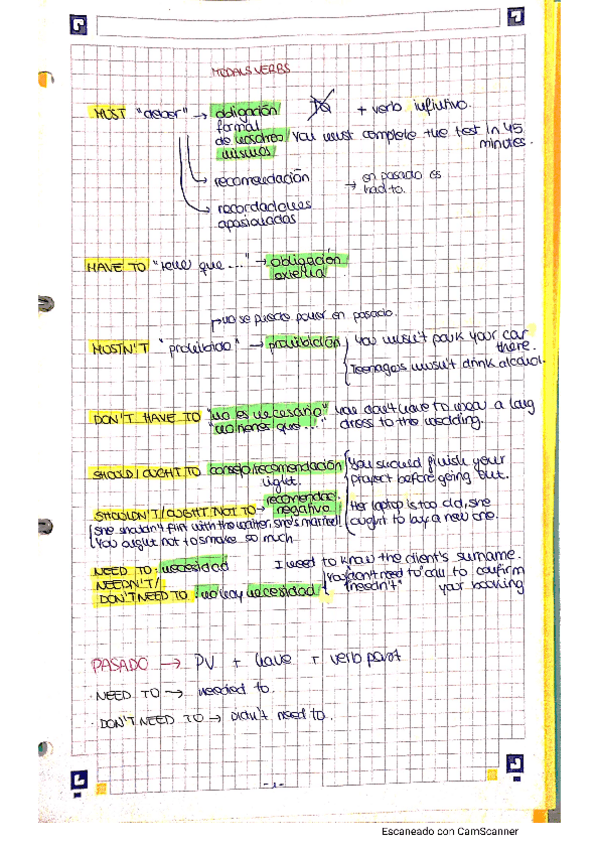 MODALS VERBS
MUST "deber" → obligación + verb infiutivo.
formal
de nosotros You must complete the test in 45
mismos minutes.
→ recomendación → en pasado es
had to.
→ recordaciones
apasionadas
HAVE TO "tener que..." → obligación
externa
→ no se puede poner en pasado.
MUSTN'T "prohibido" → prohibición You musn't park your car
there.
Teenagers musn't drink alcohol.
DON'T HAVE TO "no es necesario" you don't have to wear a long
"no tienes que..." dress to the wedding.
SHOULD/OUGHT TO consejo/recomendación You should finish your
light. project before going out.
SHOULDN'T/OUGHT NOT TO → recomendac. Her laptop is too old, she
negativa ought to buy a new one.
She shouldn't flirt with the waiter, she's married!
You ought not to smoke so much
NEED TO: necesidad I need to know the client's surname.
NEEDN'T/ You don't need to call to confirm
DON'T NEED TO: no hay necesidad "needn't" your booking
PASADO → PV + have + verb part
· NEED TO → needed to.
· DON'T NEED TO → didn't need to.
-1-
Escaneado con CamScanner